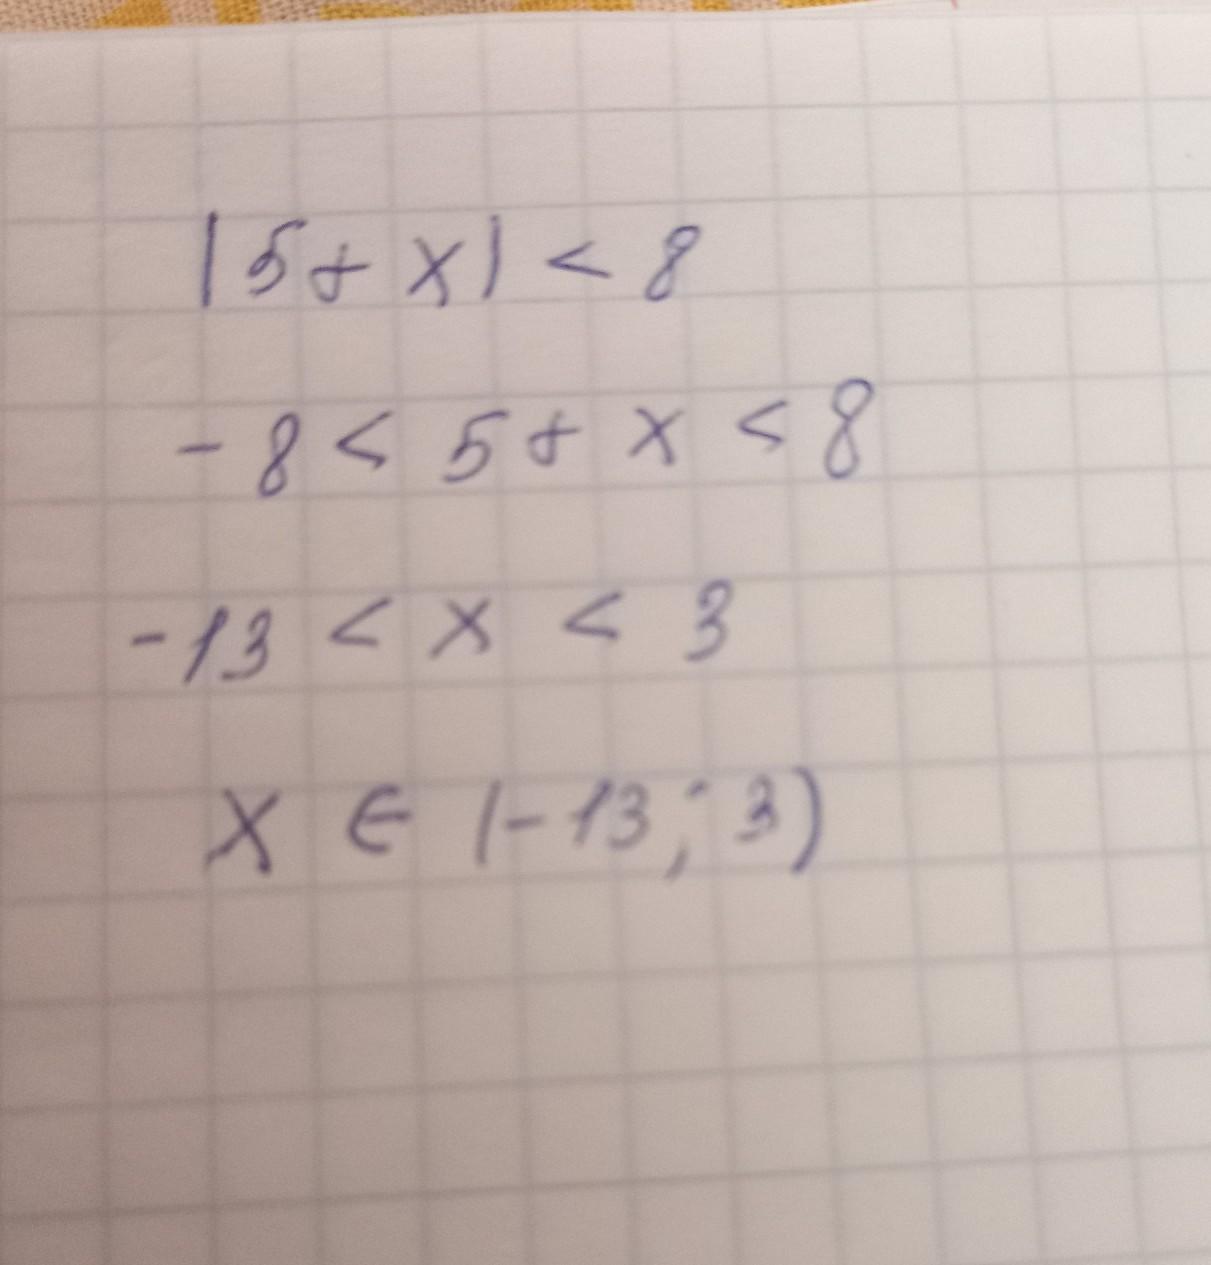 |5+x| < 8
-8 < 5+x < 8
-13 < x < 3
x ∈ (-13; 3)